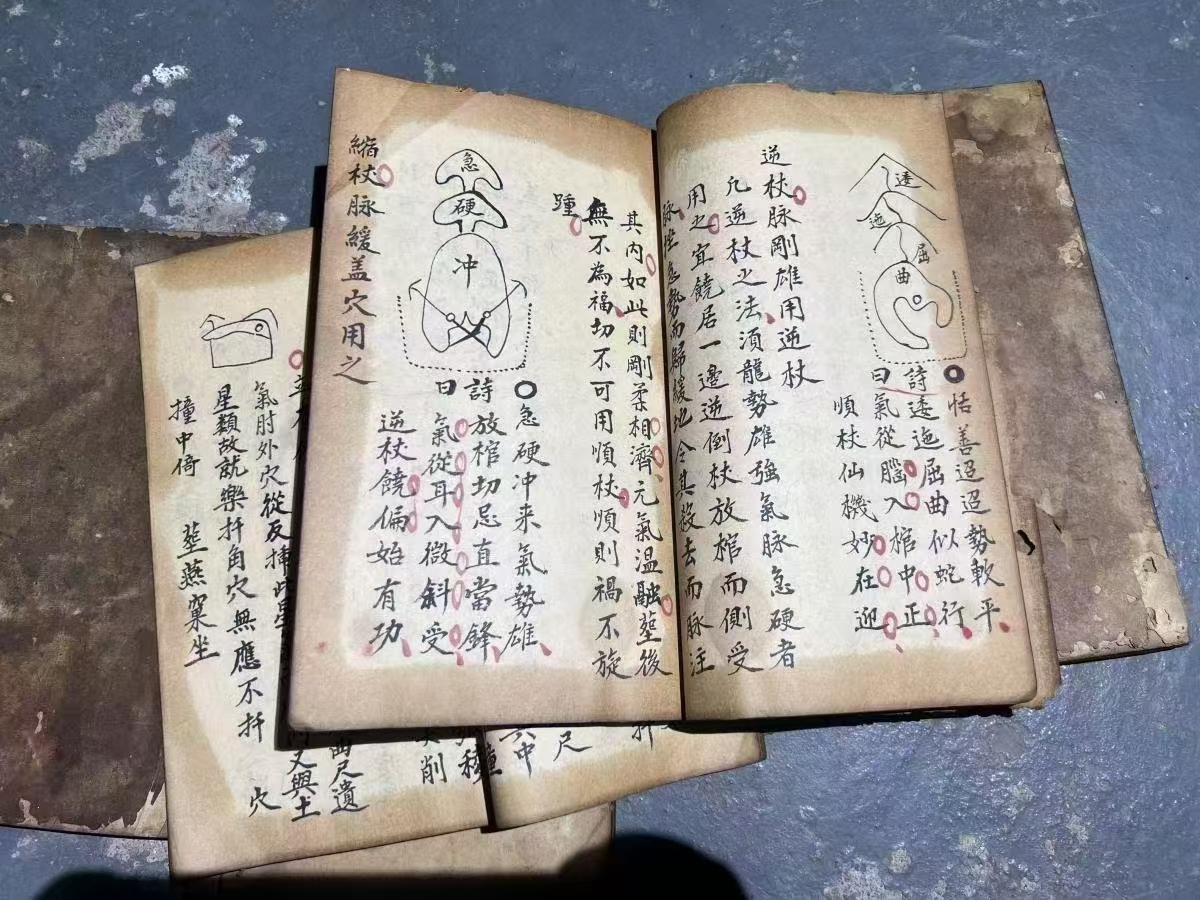 逶
迤
屈
曲
恬善迢迢勢軟平
詩曰
逶迤屈曲似蛇行
氣從腦入棺中正
順杖仙機妙在迎
逆杖脉剛雄用逆杖
凡逆杖之法須龍勢雄强氣脉急硬者
用之宜饒居一邊逆倒杖放棺而側受
急勢而歸緩也令其殺去而脉注
其内如此則剛柔相濟元氣温融塟後
無不為福切不可用順杖順則禍不旋
踵
急
硬
冲
急硬冲来氣勢雄
詩曰
放棺切忌直當鋒
氣從耳入微斜受
逆杖饒偏始有功
縮杖脉緩盖穴用之
氣肘外穴從反
星類故就樂扦角穴無應不扦
撞中倚
塟燕窠坐
穴
又與土
曲尺遺
削
中
尺
扦